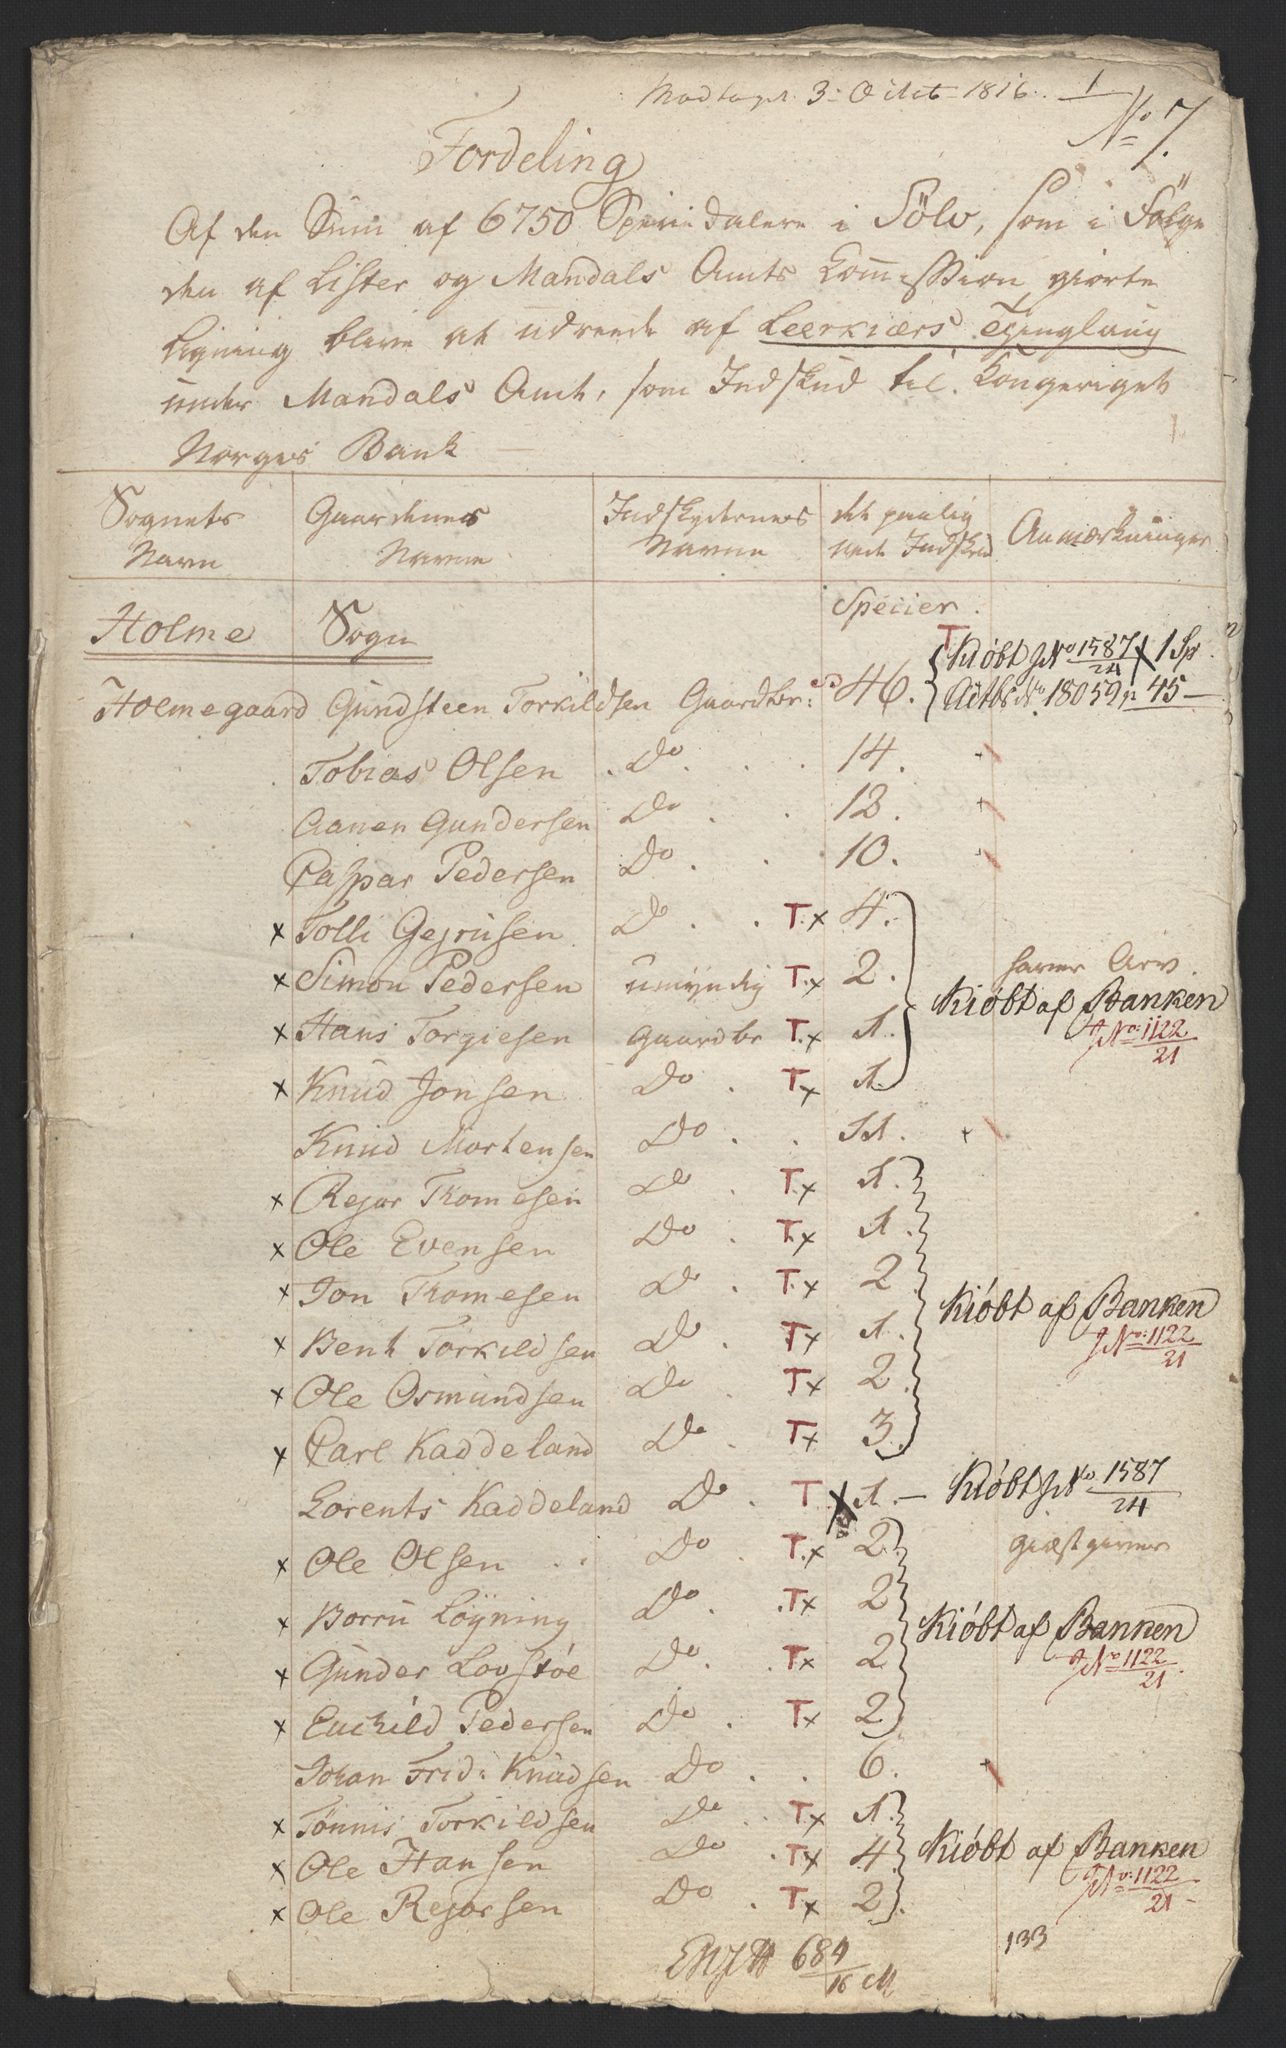 Modtaget 3. Octob 1816. 1
No 7.
Fordeling
Af den Sum af 6750 Speciedalere i Sölv, som i Fölge
den af Lister og Mandals Amts Commission giorte
Ligning bliver at udreede af Leerkiærs Tinglaug
under Mandals Amt, som Indskud til Kongeriget
Norges Bank
Sognets Navn | Gaardenes Navne | Indskydernes Navne | det paalignede Indskud | Anmærkninger
Holme Sogn Specier.
Holmegaard Gundsteen Torkildsen Gaardbr: 46. T Kiöbt J No 1587/24 x 1 Sp
Actbr No 18059, 45 —
Tobias Olsen Do 14.
Aanen Gundersen Do 12.
Caspar Pedersen Do 10.
x Tolli Gejrusen Do T.x 4.
x Simon Pedersen umyndig T.x 2. haver Arv.
Kiöbt af Banken
x Hans Torgiesen Gaardbr T.x 1. J No: 1122/21
x Knud Jonsen Do T.x 1.
Knud Mortensen Do 11.
x Rejar Thomesen Do T.x 1.
x Ole Evensen Do T.x 1.
x Jon Thomesen Do T.x 2 Kiöbt af Banken
x Bent Torkildsen Do Tx 1. J No: 1122/21
x Ole Osmundsen Do Tx 2.
x Carl Kaddeland Do Tx 3.
Lorents Kaddeland Do T x 1. — Kiöbt J No 1587/24
x Ole Olsen Do T.x 2. giæstgiver
x Borru Löyning Do .Tx 2 Kiöbt af Banken
x Gunder Lovstöe Do .Tx 2 J No 1122/21
x Enchild Pedersen Do Tx 2
Johan Frid: Knudsen Do 6.
x Tönnis Torkildsen Do T.x 1.
x Ole Hansen Do .Tx 4. Kiöbt af Banken
x Ole Rejersen Do T.x 2. J No: 1122/21
133
684/16 M